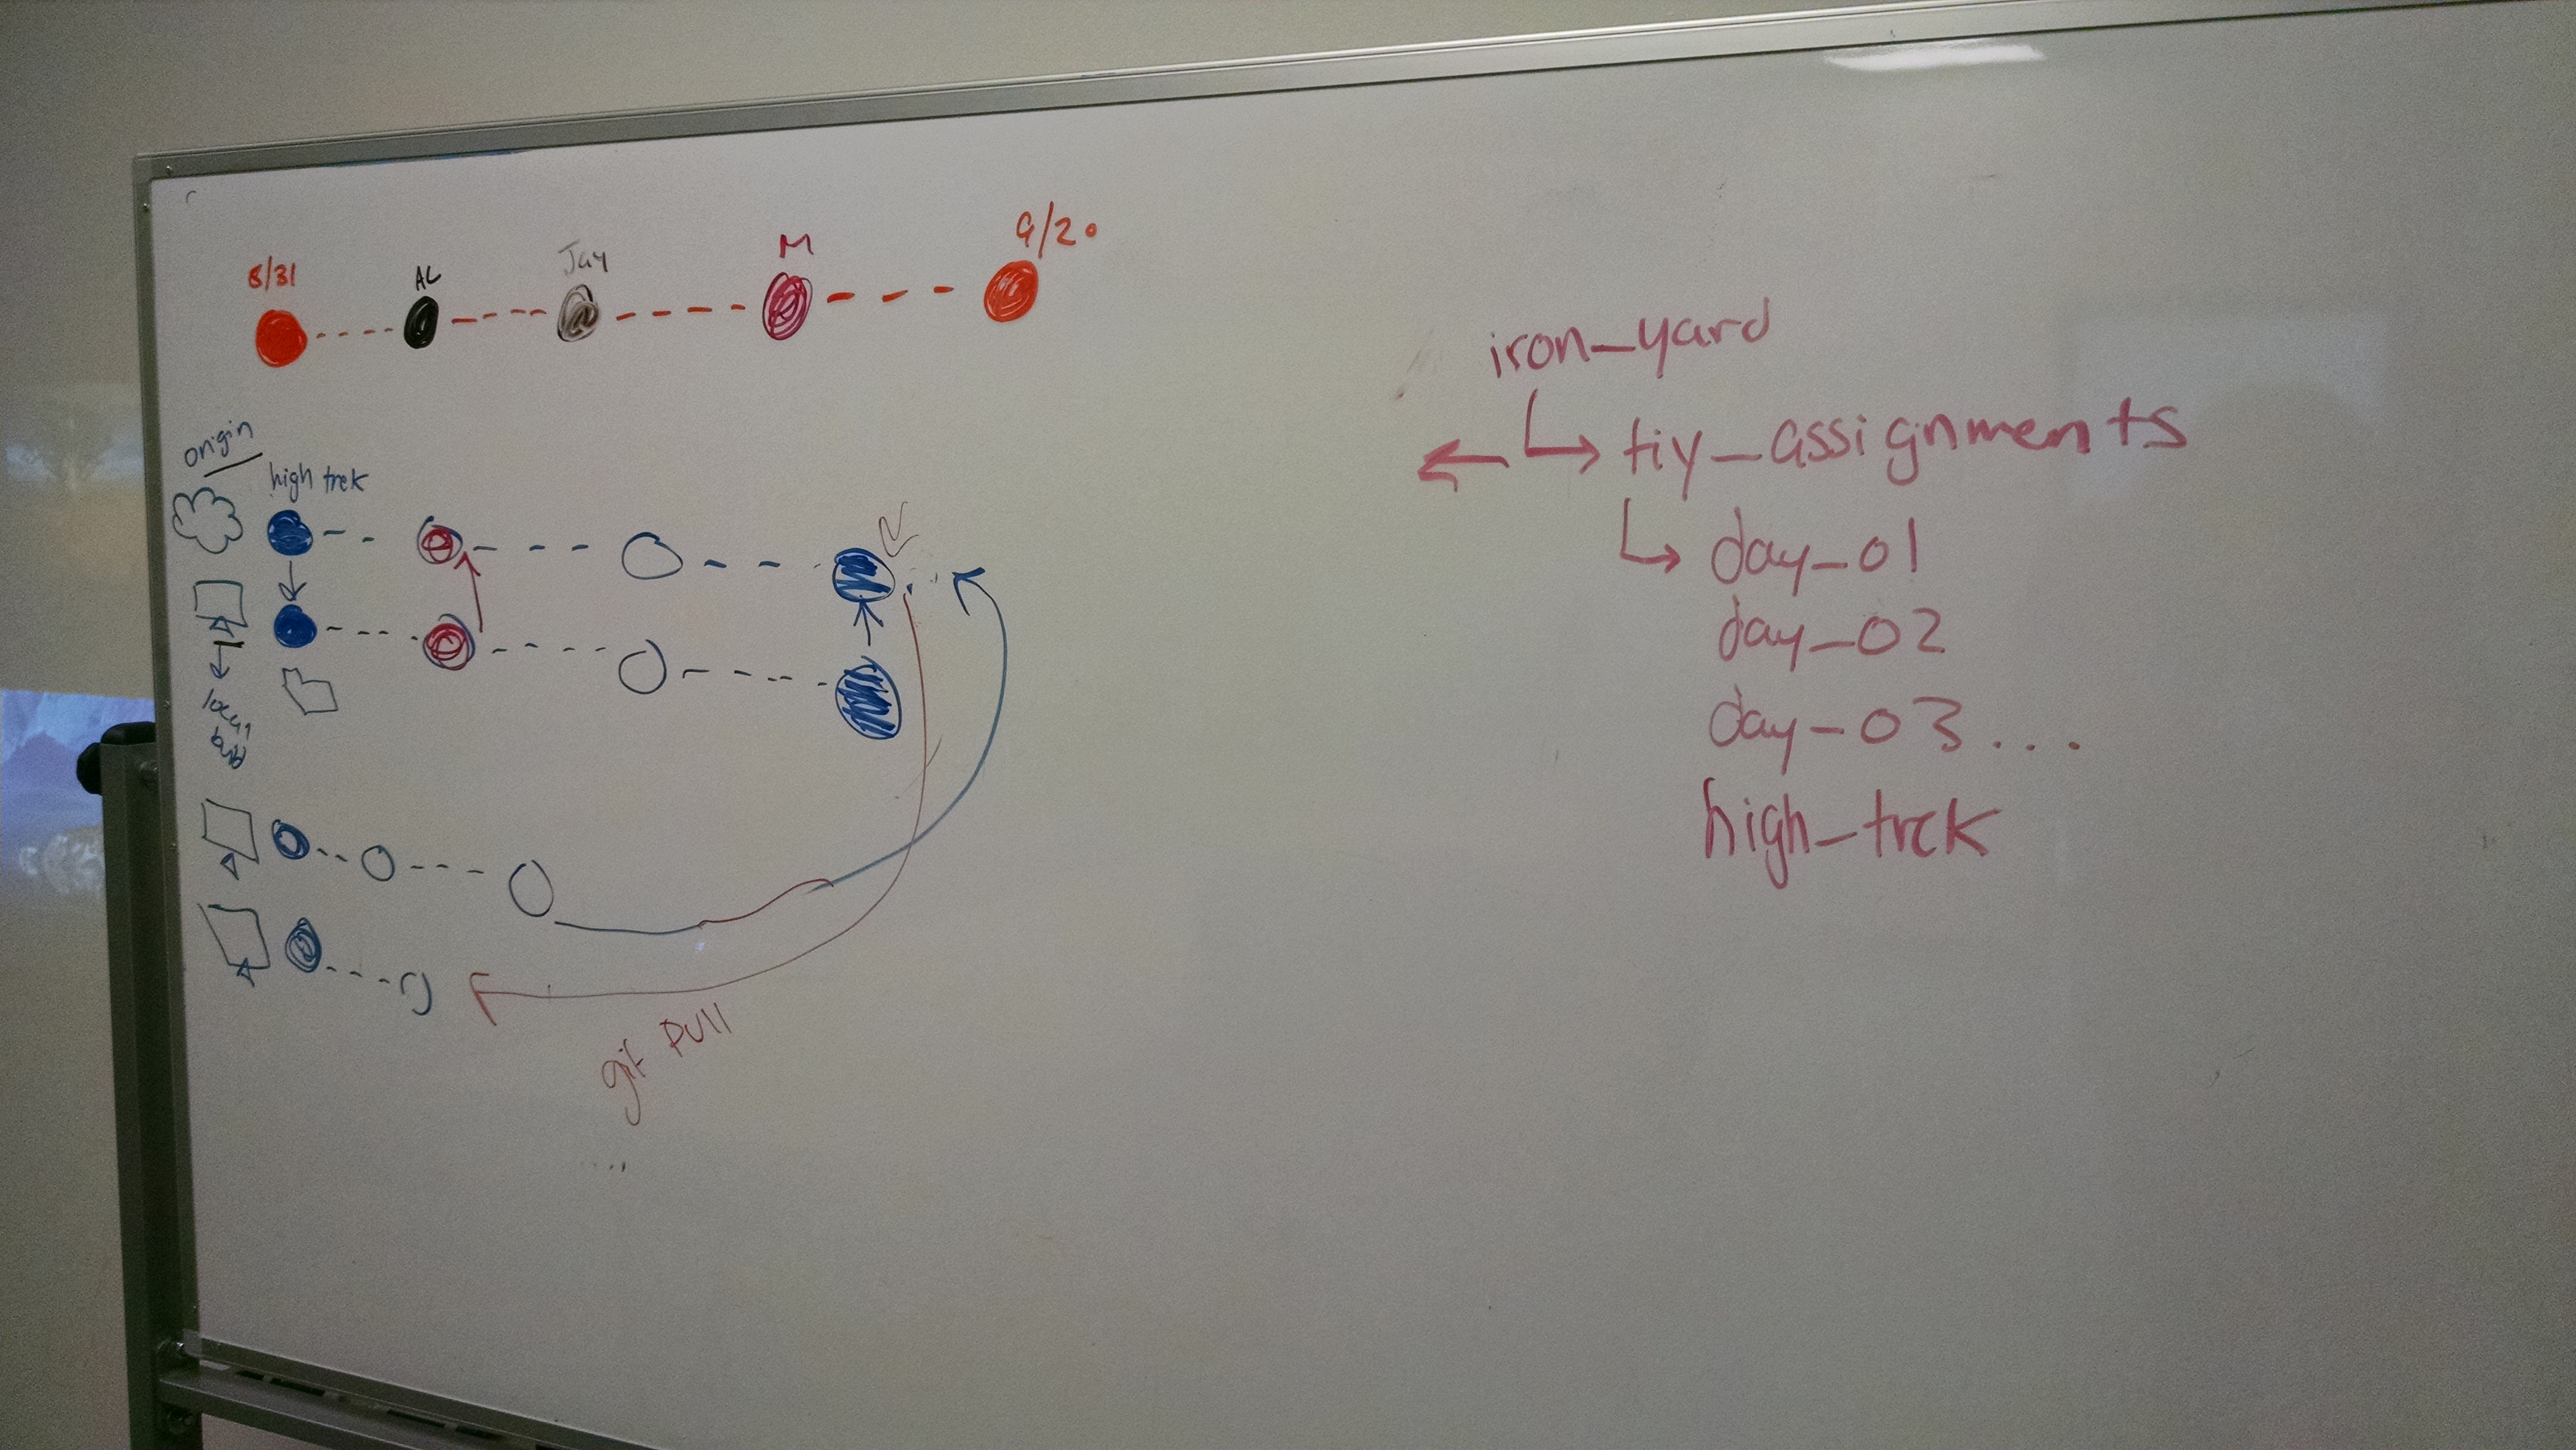 8/31 AL Jay M 9/20
origin
high trek
local
git pull
iron_yard
tiy_assignments
day_01
day_02
day_03....
high_trek